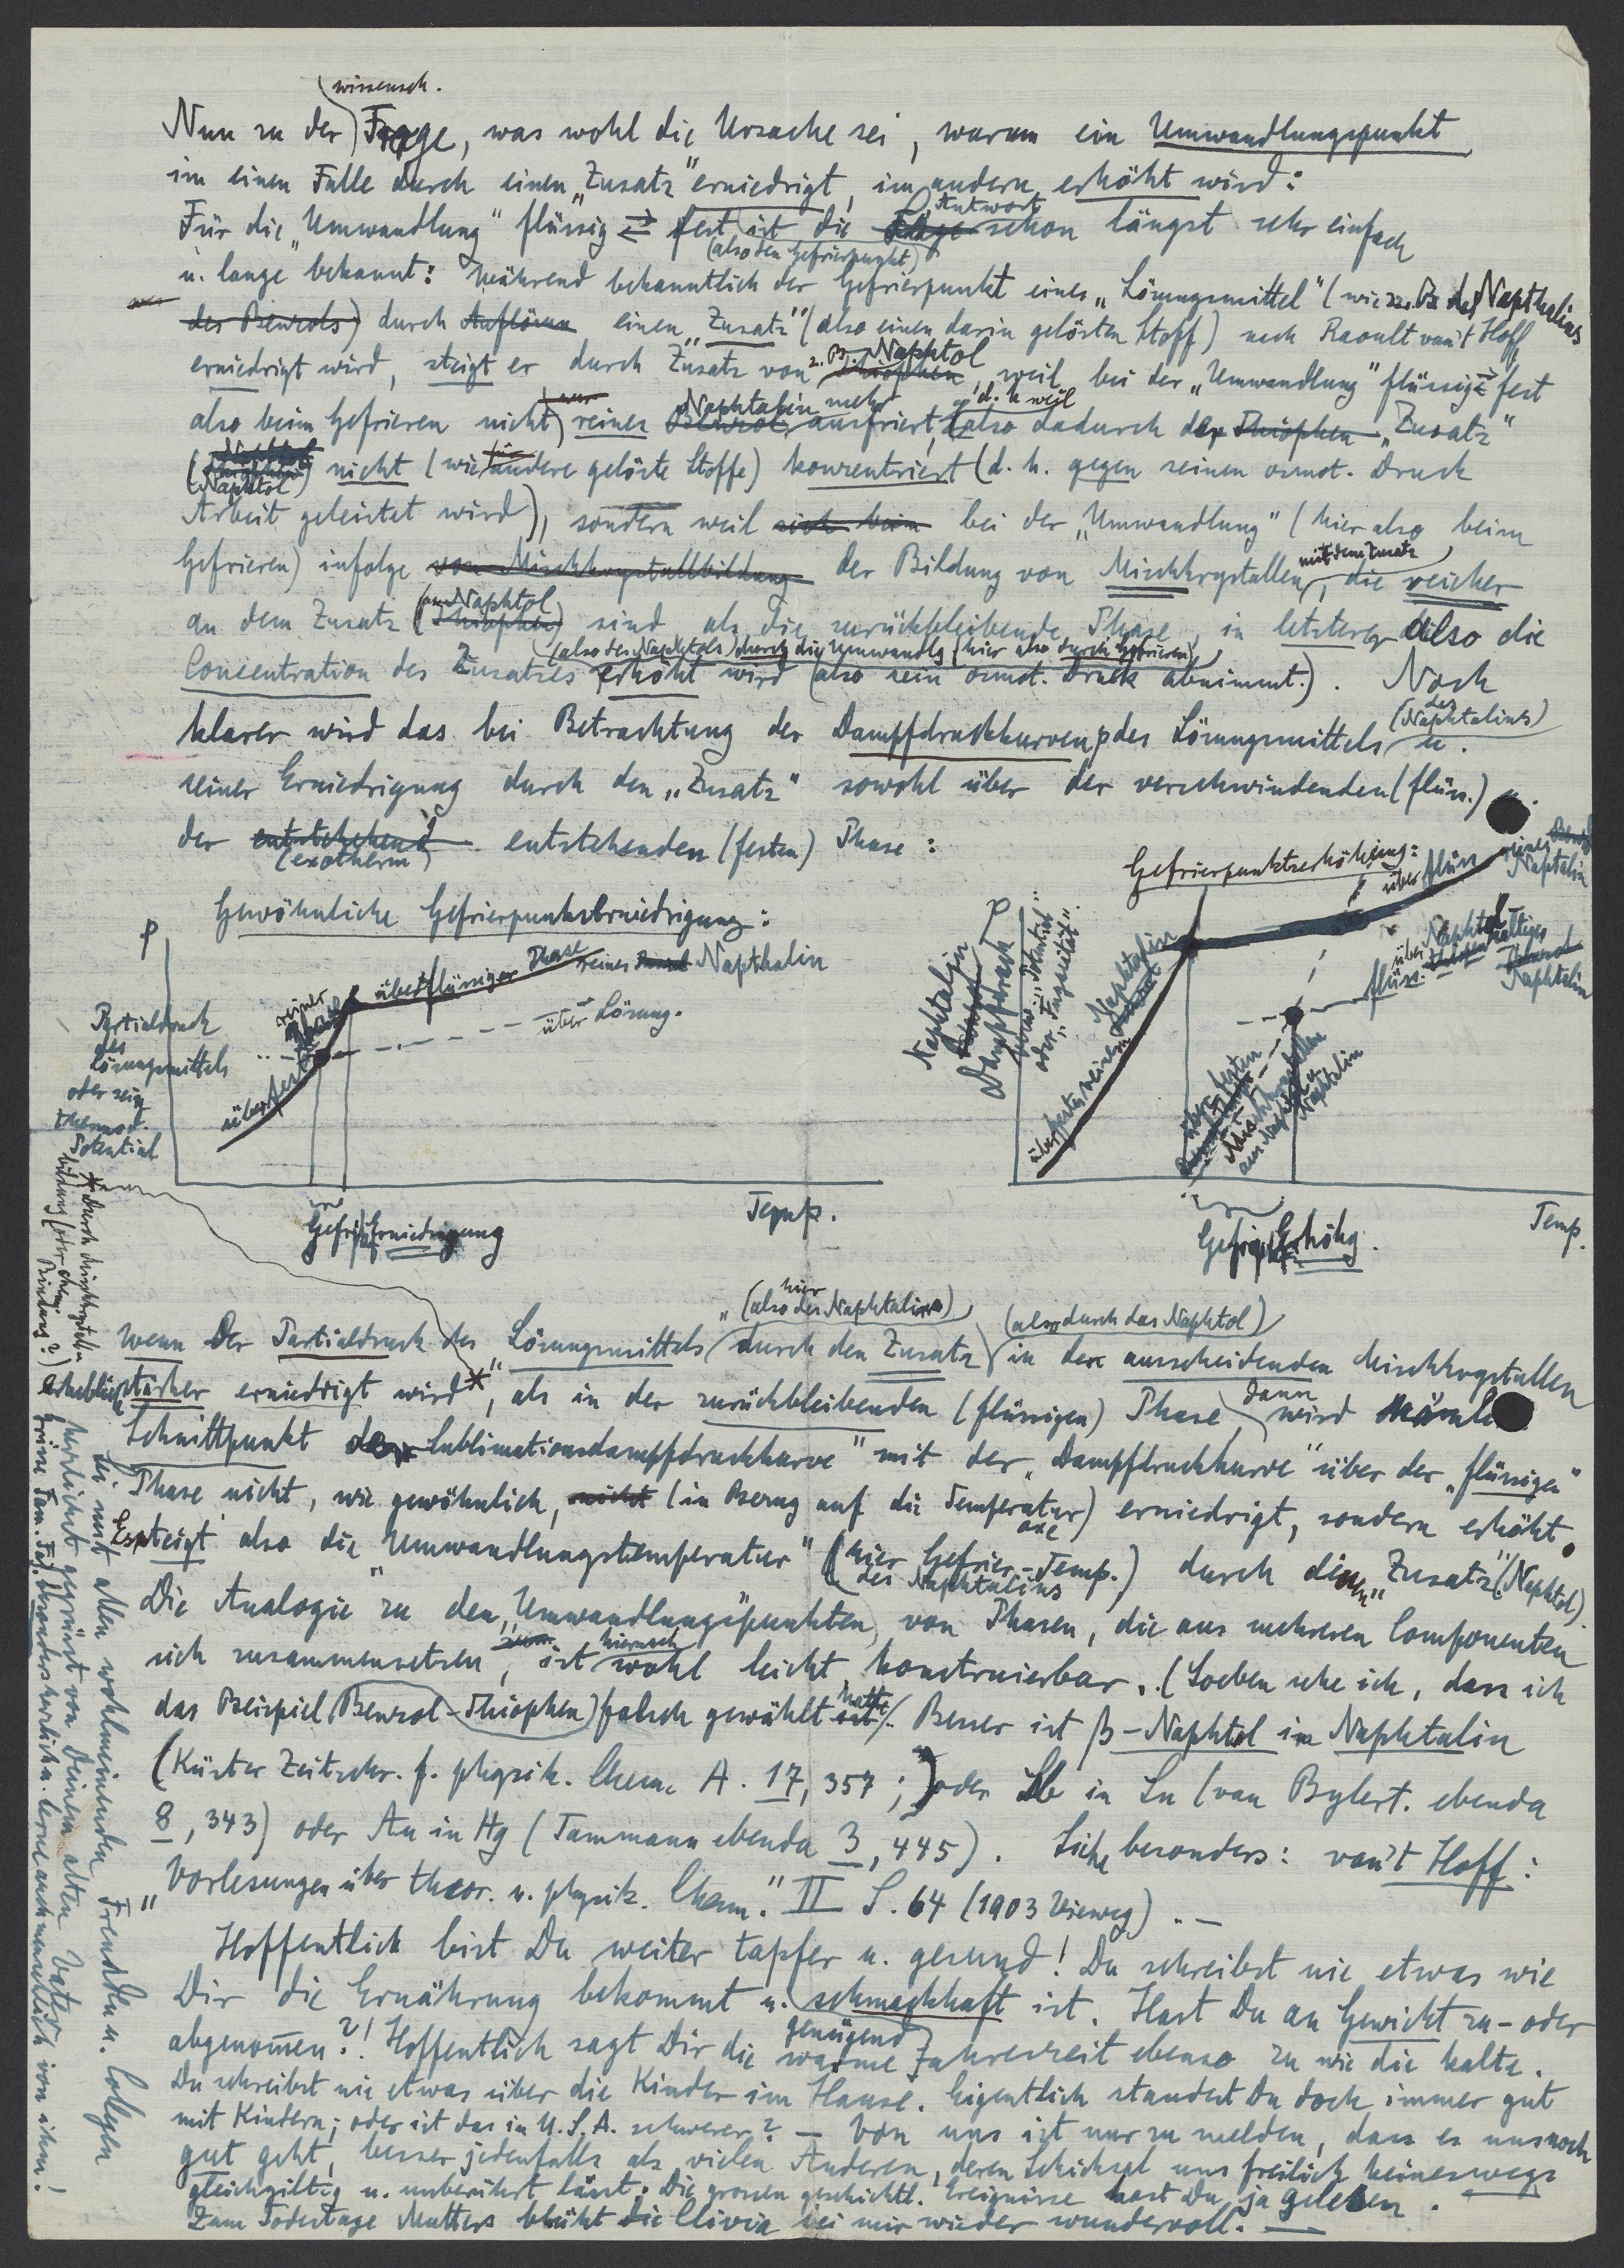 wissensch.
Nun zu der Frage, was wohl die Ursache sei, warum ein Umwandlungspunkt
im einen Falle durch einen „Zusatz" erniedrigt, im andern erhöht wird:
Für die „Umwandlung" flüssig ⇄ fest ist die Antwort schon längst sehr einfach
(also den Gefrierpunkt)
u. lange bekannt: Während bekanntlich der Gefrierpunkt eines „Lösungsmittel" (wie z. B. des Napthalins
des Benzols) durch Auflösen einen „Zusatz" (also einen darin gelösten Stoff) nach Raoult van't Hoff
erniedrigt wird, steigt er durch Zusatz von z. B. Naphtol Thiophen, weil bei der „Umwandlung" flüssig ⇄ fest
also beim Gefrieren nicht nur reines Naphtalin mehr Benzol ausfriert, d. h. weil also dadurch der Thiophen „Zusatz"
(Naphtol) nicht (wie für andere gelöste Stoffe) konzentriert (d. h. gegen seinen osmot. Druck
Arbeit geleistet wird), sondern weil sich beim bei der „Umwandlung" (hier also beim
Gefrieren) infolge von Mischkrystallbildung der Bildung von Mischkrystallen mit dem Zusatz, die reicher
an dem Zusatz (am Naphtol Thiophen) sind als die zurückbleibende Phase, in letzterer also die
(also des Naphtols) durch die Umwandlg (hier also durch Gefrieren)
Concentration des Zusatzes erhöht wird (also sein osmot. Druck abnimmt.). Noch
klarer wird das bei Betrachtung der Dampfdruckkurven p des Lösungsmittels (des Naphtalins) u.
seiner Erniedrigung durch den „Zusatz" sowohl über der verschwindenden (flüss.) u.
der entstehend entstehenden (festen) Phase:
(exotherm)
Gewöhnliche Gefrierpunktserniedrigung:
p
über flüssiger Phase reines Napthalin
über Lösung.
über fester
reiner Phase
Partialdruck
des
Lösungsmittels
oder sein
thermod.
Potential
Gefrpkt Erniedrigung
Temp.
Gefrierpunktserhöhung:
p
über flüss. reines Benzol Naphtalin
über Naphtolhaltiges Naphtalin
flüss.
Naphtalin
Dampfdruck
oder „Fugazität".
über festen reinem Naphtalin
über festen
Mischkrystallen
aus Naphtol u.
Naphtalin
Gefrpkt Erhöhg.
Temp.
hier
(also des Naphtalins) (also durch das Naphtol)
Wenn der Partialdruck des „Lösungsmittels" durch den Zusatz in den ausscheidenden Mischkrystallen
erheblich stärker erniedrigt wird*, als in der zurückbleibenden (flüssigen) Phase, dann wird
Schnittpunkt der Sublimationsdampfdruckkurve" mit der „Dampfdruckkurve" über der „flüssigen"
Phase nicht, wie gewöhnlich, nicht (in Bezug auf die Temperaturaxe) erniedrigt, sondern erhöht.
Es steigt also die „Umwandlungstemperatur" (hier Gefrier-Temp. des Naphtalins) durch den „Zusatz" (Naphtol).
Die Analogie zu den „Umwandlungspunkten" von Phasen, die aus mehreren Componenten
sich zusammensetzen, ist hiernach wohl leicht konstruierbar. (Soeben sehe ich, dass ich
das Beispiel (Benzol-Thiophen) falsch gewählt hatte. Besser ist β-Naphtol in Naphtalin
(Küster Zeitschr. f. physik. Chem. A. 17, 357;) oder Sb in Sn (van Bylert. ebenda
8, 343) oder Au in Hg (Tammann ebenda 3, 445). Siehe besonders: van't Hoff:
„Vorlesungen über theor. u. physik. Chem." II S. 64 (1903 Vieweg). –
Hoffentlich bist Du weiter tapfer u. gesund! Du schreibst nie etwas wie
Dir die Ernährung bekommt u. schmackhaft ist. Hast Du an Gewicht zu- oder
abgenommen?! Hoffentlich sagt Dir die genügend warme Jahreszeit ebenso zu wie die kalte.
Du schreibst nie etwas über die Kinder im Hause. Eigentlich standest Du doch immer gut
mit Kindern; oder ist das in U.S.A. schwerer? – Von uns ist nur zu melden, dass es uns noch
gut geht, besser jedenfalls als vielen Anderen, deren Schicksal uns freilich keineswegs
gleichgiltig u. unberührt lässt. Die grossen geschichtl. Ereignisse hast Du ja gelesen.
Zum Todestage Mutters blüht die Clivia bei mir wieder wundervoll. –
* durch Mischkrystall-
bildung (oder chem.
Bindung?)
Sei mit allen wohlmeinenden Freunden u. Collegen
herzlichst gegrüsst von Deinem alten Vater.
Grüsse Fam. besonders herzlich u. lerne auch menschlich von ihm!